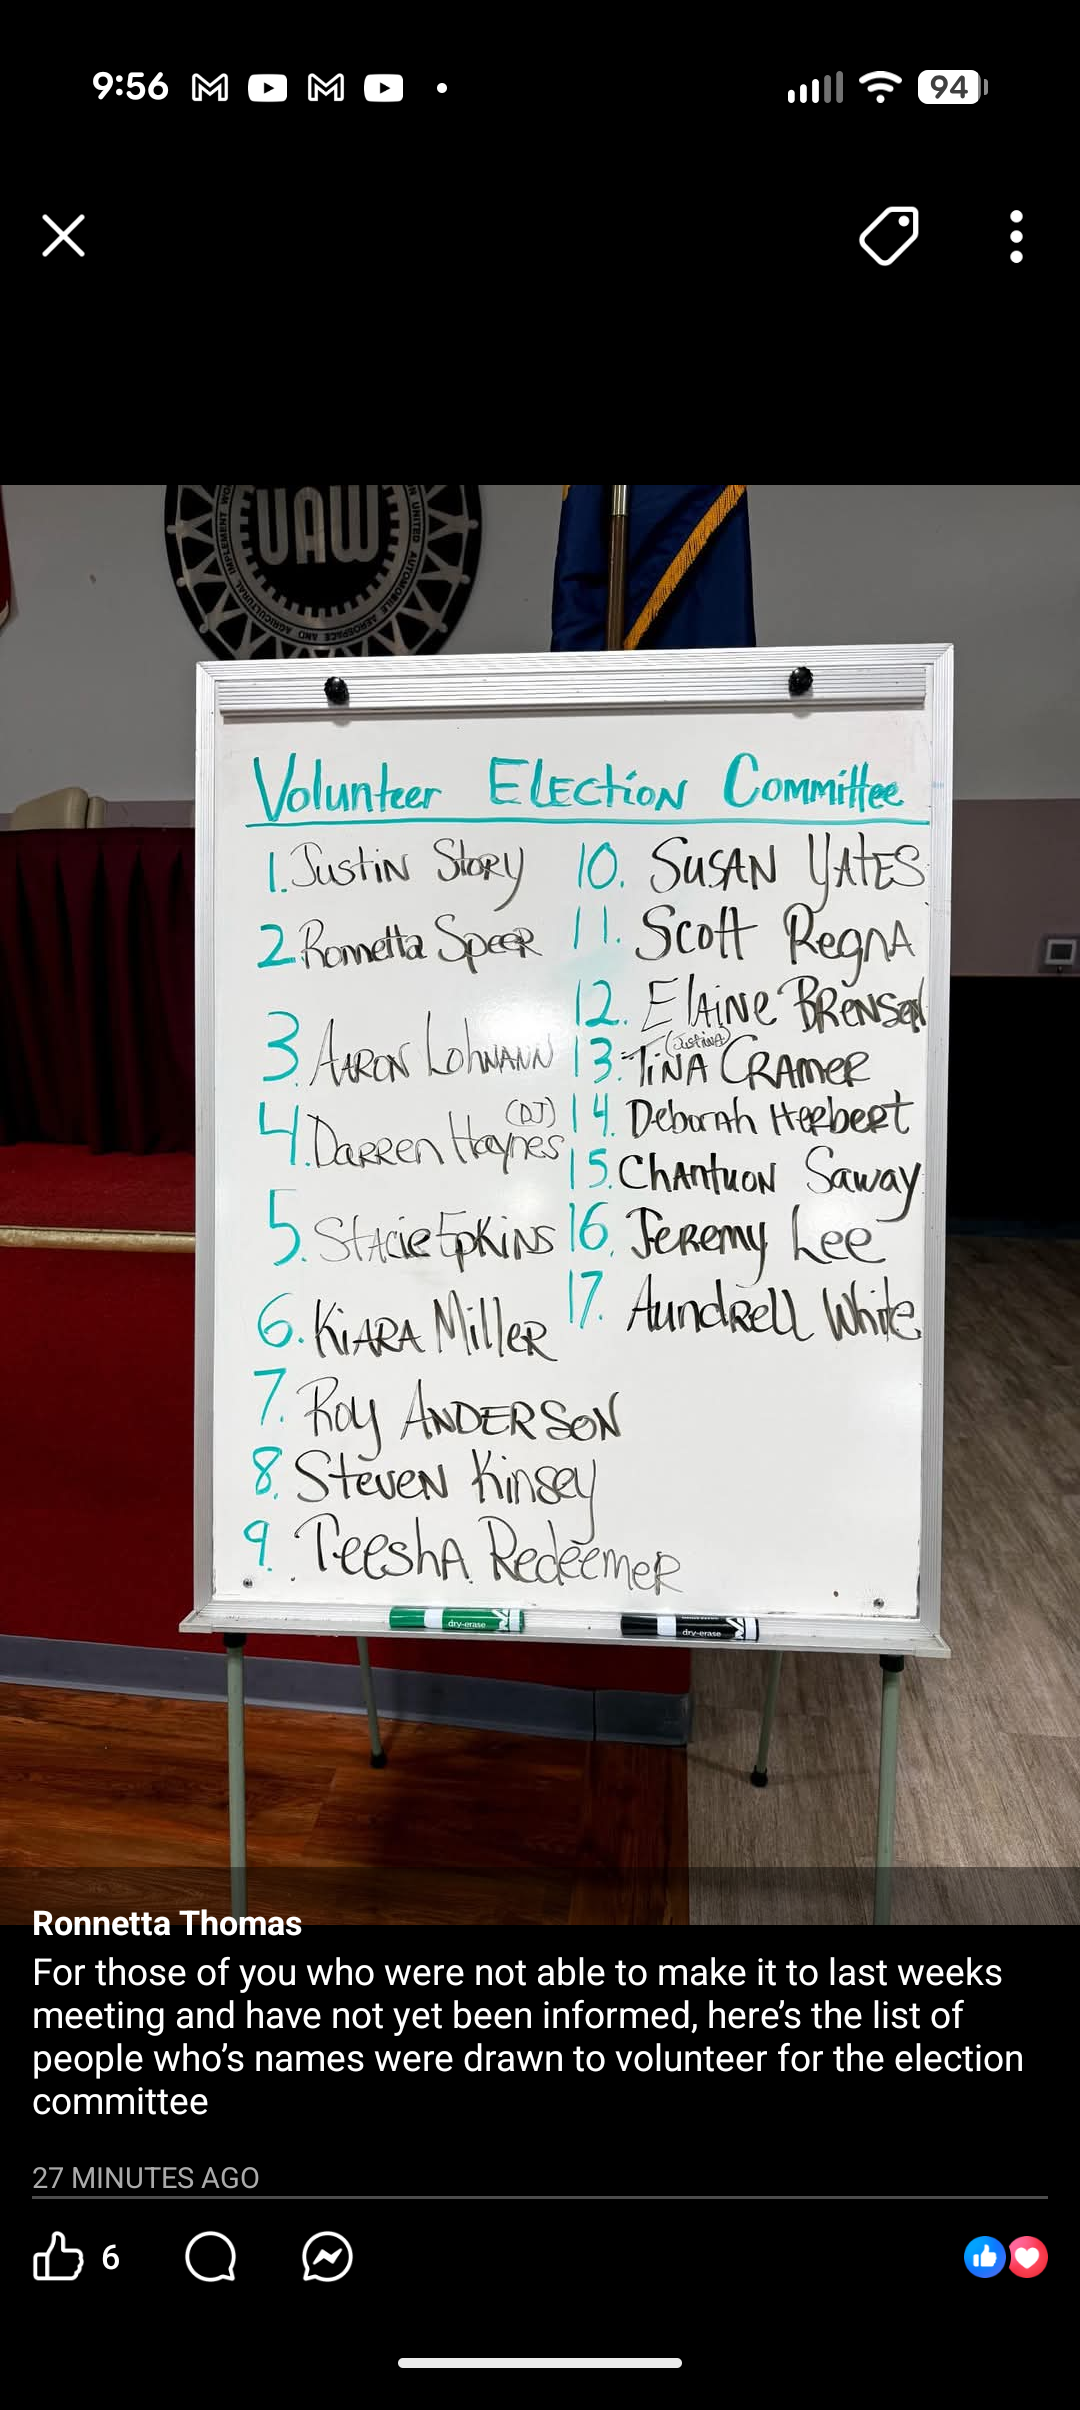 9:56
94
UAW
UNITED AUTOMOBILE AEROSPACE AND AGRICULTURAL IMPLEMENT
Volunteer Election Committee
1. Justin Story
2. Ronnetta Speer
3. Aaron Lohmann
4. Darren Haynes (DJ)
5. Stacie Epkins
6. Kiara Miller
7. Roy Anderson
8. Steven Kinsey
9. Teesha Redeemer
10. Susan Yates
11. Scott Regna
12. Elaine Brenson
13. Tina (Justina) Cramer
14. Deborah Herbert
15. Chantuon Saway
16. Jeremy Lee
17. Aundrell White
dry-erase
dry-erase
Ronnetta Thomas
For those of you who were not able to make it to last weeks
meeting and have not yet been informed, here’s the list of
people who’s names were drawn to volunteer for the election
committee
27 MINUTES AGO
6